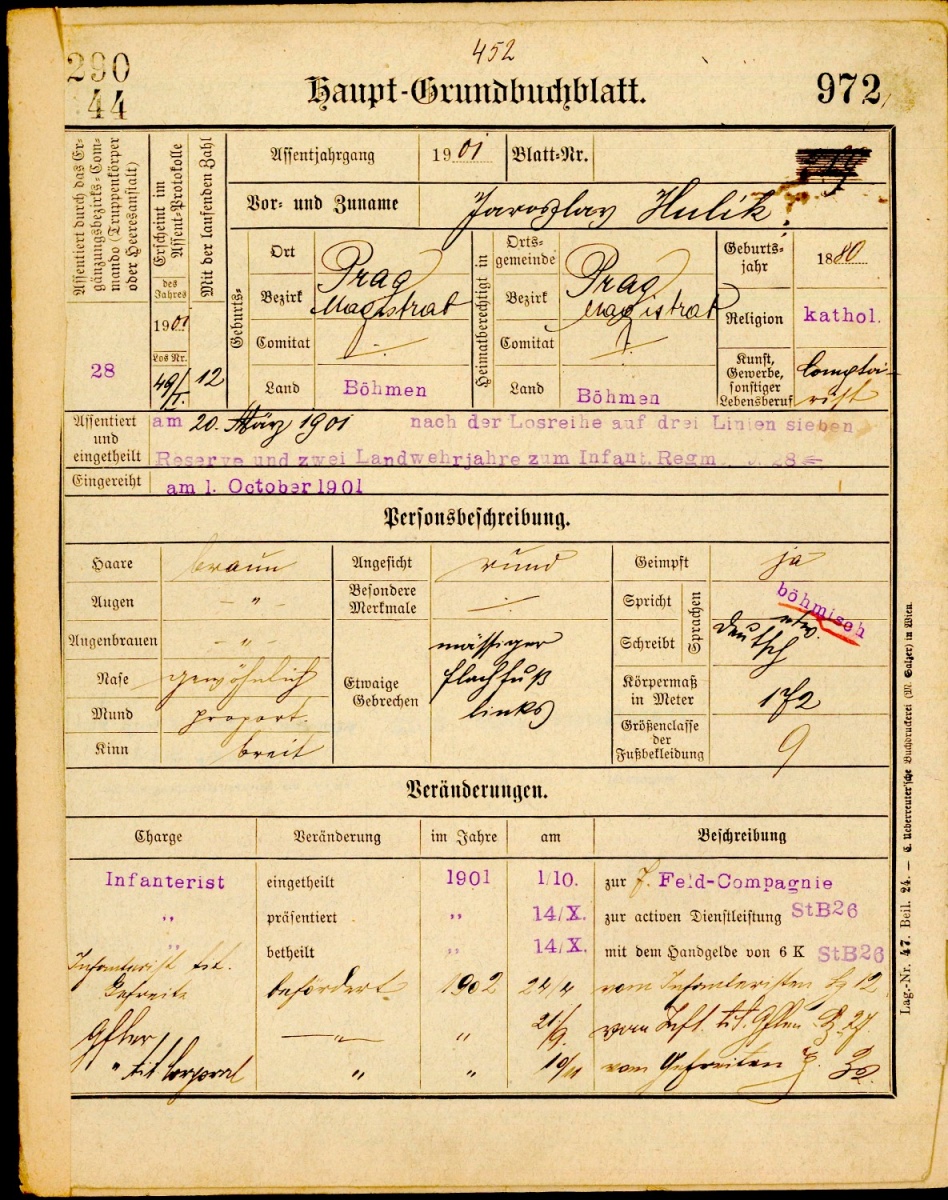 452
290
44
Haupt-Grundbuchblatt.
972
Assentiert durch das Ergänzungsbezirks-Commando (Truppenkörper oder Heeresanstalt)
28
Erscheint im Assent-Protokolle
des Jahres
1901
Los Nr.
49/I.
Mit der laufenden Zahl
12
Assentjahrgang 1901 Blatt-Nr.
Vor- und Zuname Jaroslav Hulík
Geburts-
Ort Prag
Bezirk Magistrat
Comitat
Land Böhmen
Heimatberechtigt in
Ortsgemeinde Prag
Bezirk Magistrat
Comitat
Land Böhmen
Geburtsjahr 1880
Religion kathol.
Kunst, Gewerbe, sonstiger Lebensberuf Comptoirist
Assentiert und eingetheilt
am 20. März 1901 nach der Losreihe auf drei Linien sieben
Reserve und zwei Landwehrjahre zum Infant. Regm 28
Eingereiht am 1. October 1901
Personsbeschreibung.
Haare braun
Augen - " -
Augenbrauen - " -
Nase gewöhnlich
Mund proport.
Kinn breit
Angesicht rund
Besondere Merkmale
Etwaige Gebrechen
mässiger
Flachfuß
links
Geimpft ja
Spricht
Schreibt
Sprachen
böhmisch
etw.
deutsch
Körpermaß in Meter 172
Größenclasse der Fußbekleidung 9
Veränderungen.
Charge Veränderung im Jahre am Beschreibung
Infanterist eingetheilt 1901 1/10. zur 7. Feld-Compagnie
" präsentiert " 14/X. zur activen Dienstleistung StB26
" betheilt " 14/X. mit dem Handgelde von 6 K StB26
Infanterist tit.
Gefreite befördert 1902 24/4 vom Infanteristen 12
Gfter " 21/9. vom Inft. tit. Gften 27
" tit Corporal " " 10/11 vom Gefreiten
Lag.-Nr. 47. Beil. 24. — C. Ueberreuter'sche Buchdruckerei (M. Salzer) in Wien.